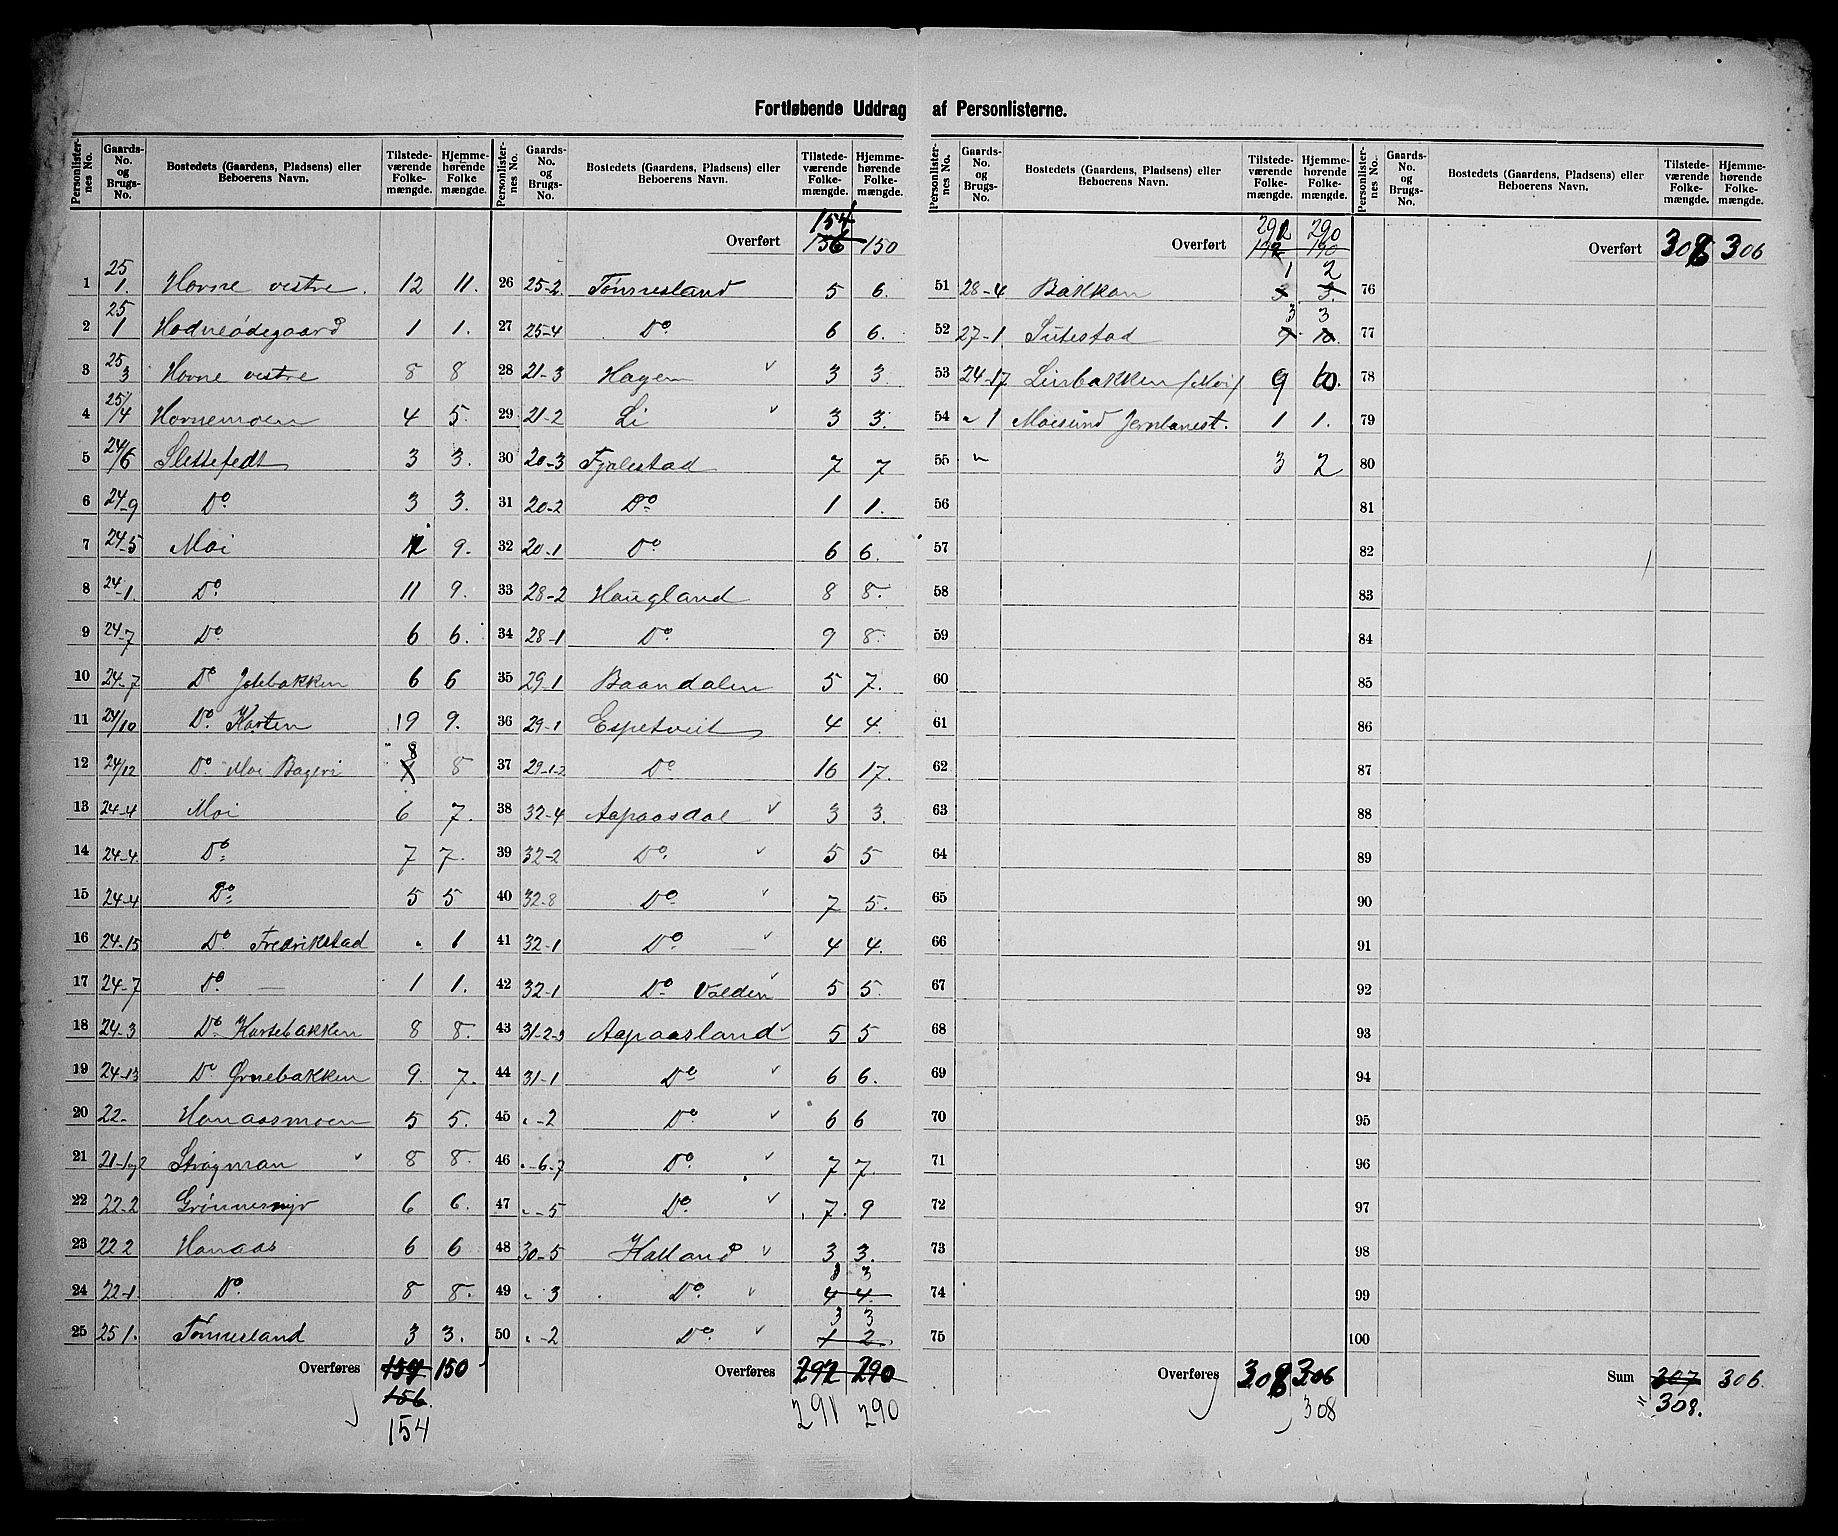 Fortløbende Uddrag af Personlisterne.
Personlisternes No. | Gaards-No. og Brugs-No. | Bostedets (Gaardens, Pladsens) eller Beboerens Navn. | Tilstedeværende Folkemængde. | Hjemmehørende Folkemængde.
1 25 1. Hovne vestre. 12 11.
2 25 1 Hodneødegaard 1 1.
3 25 3 Hovne vestre 8 8
4 25/4 Hovnemoen 4 5.
5 24/6 Slettefedt 3 3.
6 24-9 Do 3 3.
7 24-5 Moi 12 9.
8 24-1. Do. 11 9.
9 24-7 Do 6 6.
10 24-7 Do Jobbakken 6 6
11 24/10 Do. Karten 9 9.
12 24/12 Do. Moi Bageri 8 8
13 24-4 Moi 6 7.
14 24-4. Do 7 7.
15 24-4 Do 5 5
16 24-15 Do Fredrikstad . 1
17 24-7 Do — 1 1.
18 24-3 Do Kartebakken 8 8.
19 24-13 Do Ørnebakken 9. 7.
20 22- Honaasmoen 5 5.
21 21-1og2 Strøgman 8 8.
22 22-2 Grønnesmyr 6 6.
23 22 2 Honaas 6 6
24 22-1 Do. 8 8.
25 25 1. Tonnesland 3 3.
Overføres 157 150
156.
154
Overført 154 156 150
26 25-2. Tonnesland 5 6.
27 25-4 Do. 6 6.
28 21-3 Hagen 3 3.
29 21-2 Li 3 3.
30 20-3 Fjalestad 7 7
31 20-2 Do 1 1.
32 20-1 Do 6 6.
33 28-2 Haugland 8 8.
34 28-1 Do. 9 8.
35 29-1 Baandalen 5 7.
36 29-1 Espetveit 4 4.
37 29-1-2 Do 16 17.
38 32-4 Aapaasdal 3 3.
39 32-2 Do. 5 5
40 32-8 Do 7 5.
41 32-1 Do — 4 4.
42 32-1 Do Valden 5 5.
43 31-2-3 Aapaasland 5 5
44 31-1 Do 6 6.
45 " -2 Do 6 6
46 " -6-7 Do. 7 7.
47 " -5 Do. 7. 9
48 30-5 Halland 3 3.
49 " 3 Do. 3 3 4 4.
50 " -2 Do. 3 3 1 2.
Overføres 292 290
291 290
Overført 291 290 192 190
51 28-4 Bakkan 1 2 3 3.
52 27-1 Sutestad 3 3 9 10.
53 24-17 Linbakken (Moi) 9 10.
54 " 1 Moisund Jernbanest. 1 1.
55 " 3 2
56
57
58
59
60
61
62
63
64
65
66
67
68
69
70
71
72
73
74
75
Overføres 308 306
308
Overført 308 306
76
77
78
79
80
81
82
83
84
85
86
87
88
89
90
91
92
93
94
95
96
97
98
99
100
Sum 307 306.
308.